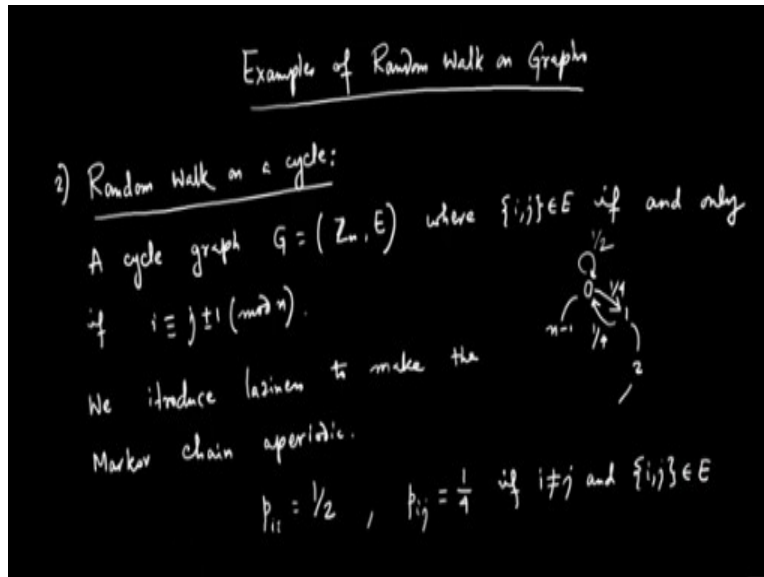 Examples of Random Walk on Graphs
2) Random Walk on a cycle:
A cycle graph G = (Zn, E) where {i,j} ∈ E if and only
if i ≡ j ± 1 (mod n).
1/2
0 1/4
n-1 1/4 1
2
We itroduce laziness to make the
Markov chain aperiodic.
pii = 1/2 , pij = 1/4 if i ≠ j and {i,j} ∈ E